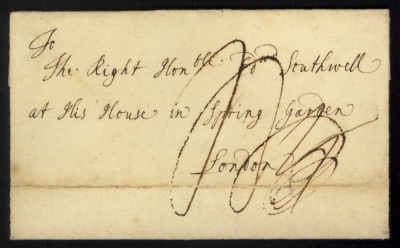 To
The Right Hon^ble Ed^wd Southwell
at His House in Spring Garden
London